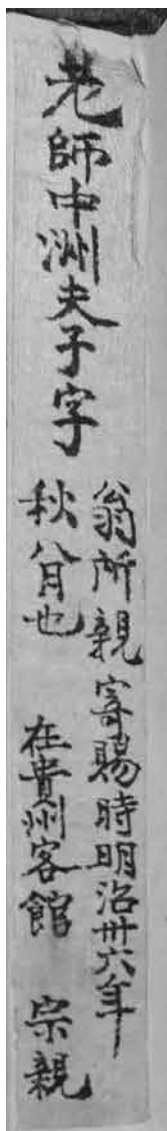 老師中洲夫子字
翁所親寄賜時明治卅六年
秋八月也 在貴州客館 宗親